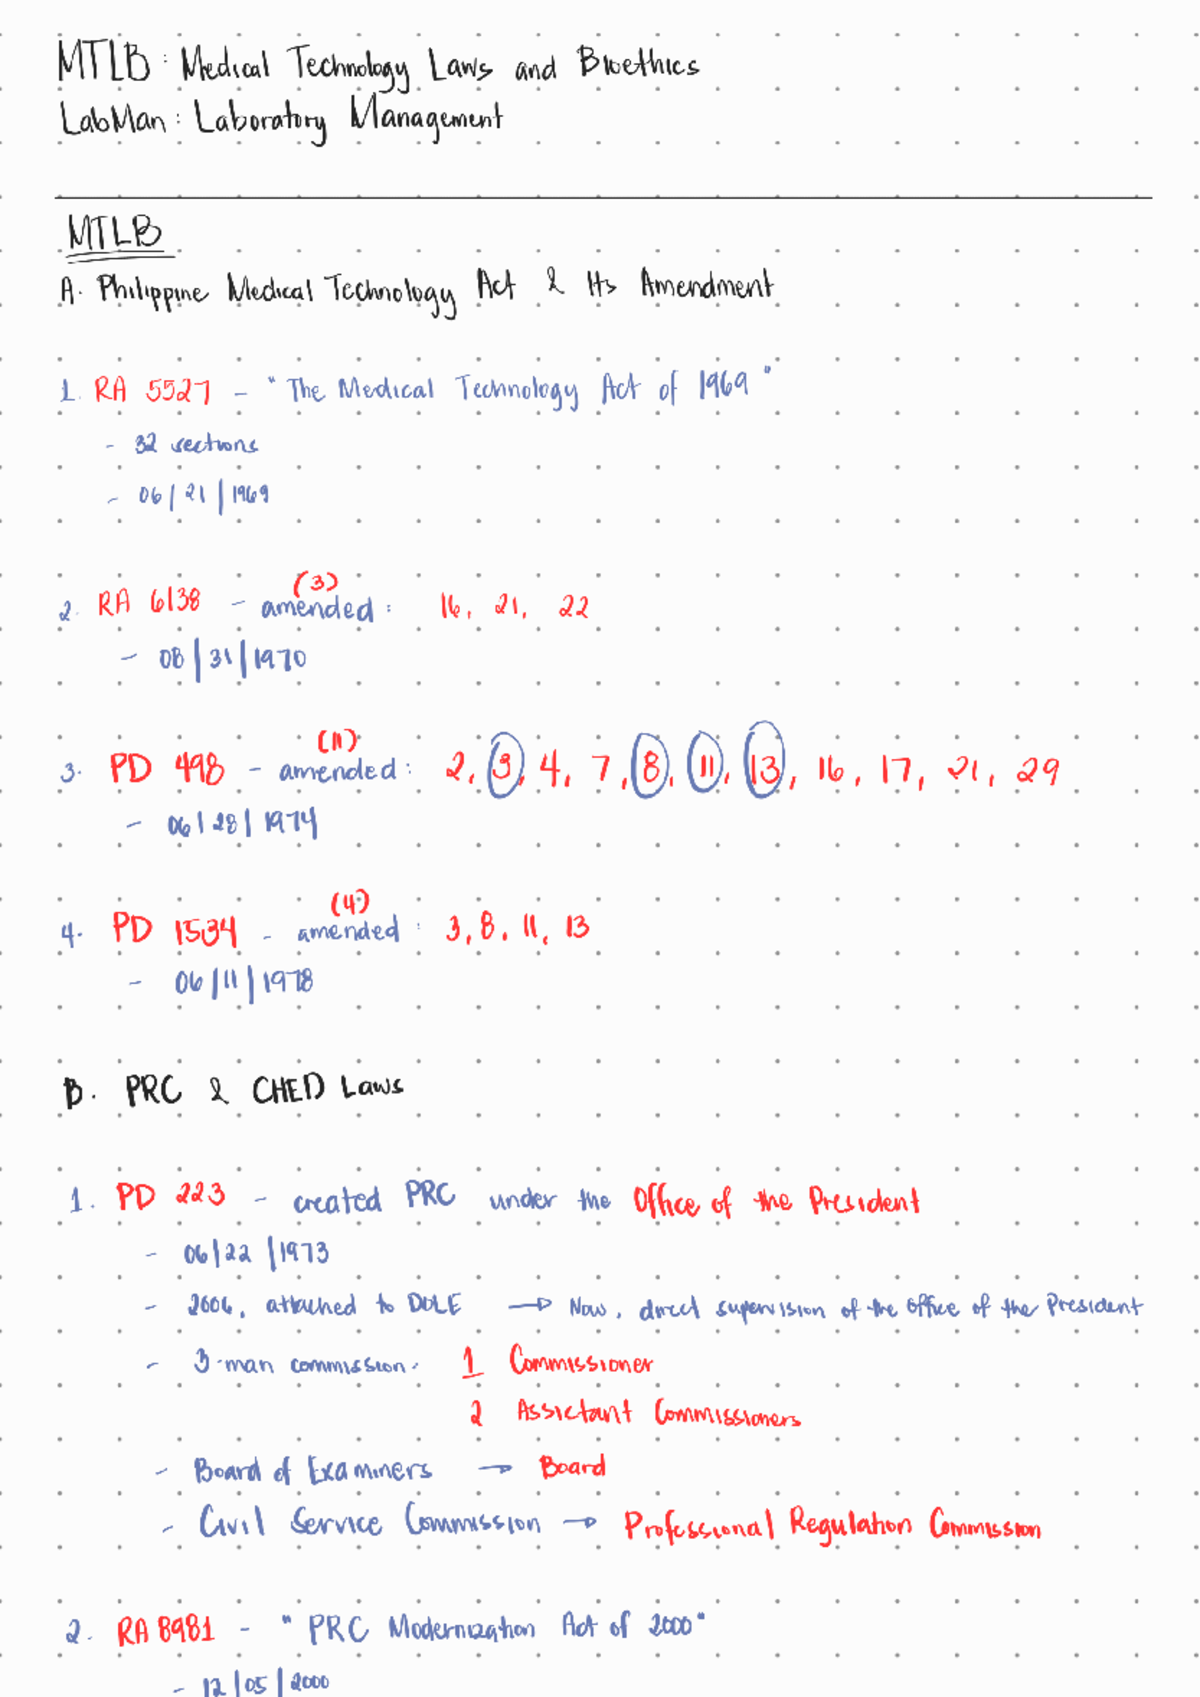 MTLB: Medical Technology Laws and Bioethics
LabMan: Laboratory Management
MTLB
A. Philippine Medical Technology Act & Its Amendment
1. RA 5527 - "The Medical Technology Act of 1969"
- 32 sections
- 06/21/1969
(3)
2. RA 6138 - amended: 16, 21, 22
- 08/31/1970
(11)
3. PD 498 - amended: 2, 3, 4, 7, 8, 11, 13, 16, 17, 21, 29
- 06/28/1974
(4)
4. PD 1534 - amended: 3, 8, 11, 13
- 06/11/1978
B. PRC & CHED Laws
1. PD 223 - created PRC under the Office of the President
- 06/22/1973
- 2006, attached to DOLE → Now, direct supervision of the Office of the President
- 3-man commission: 1 Commissioner
2 Assistant Commissioners
- Board of Examiners → Board
- Civil Service Commission → Professional Regulation Commission
2. RA 8981 - "PRC Modernization Act of 2000"
- 12/05/2000